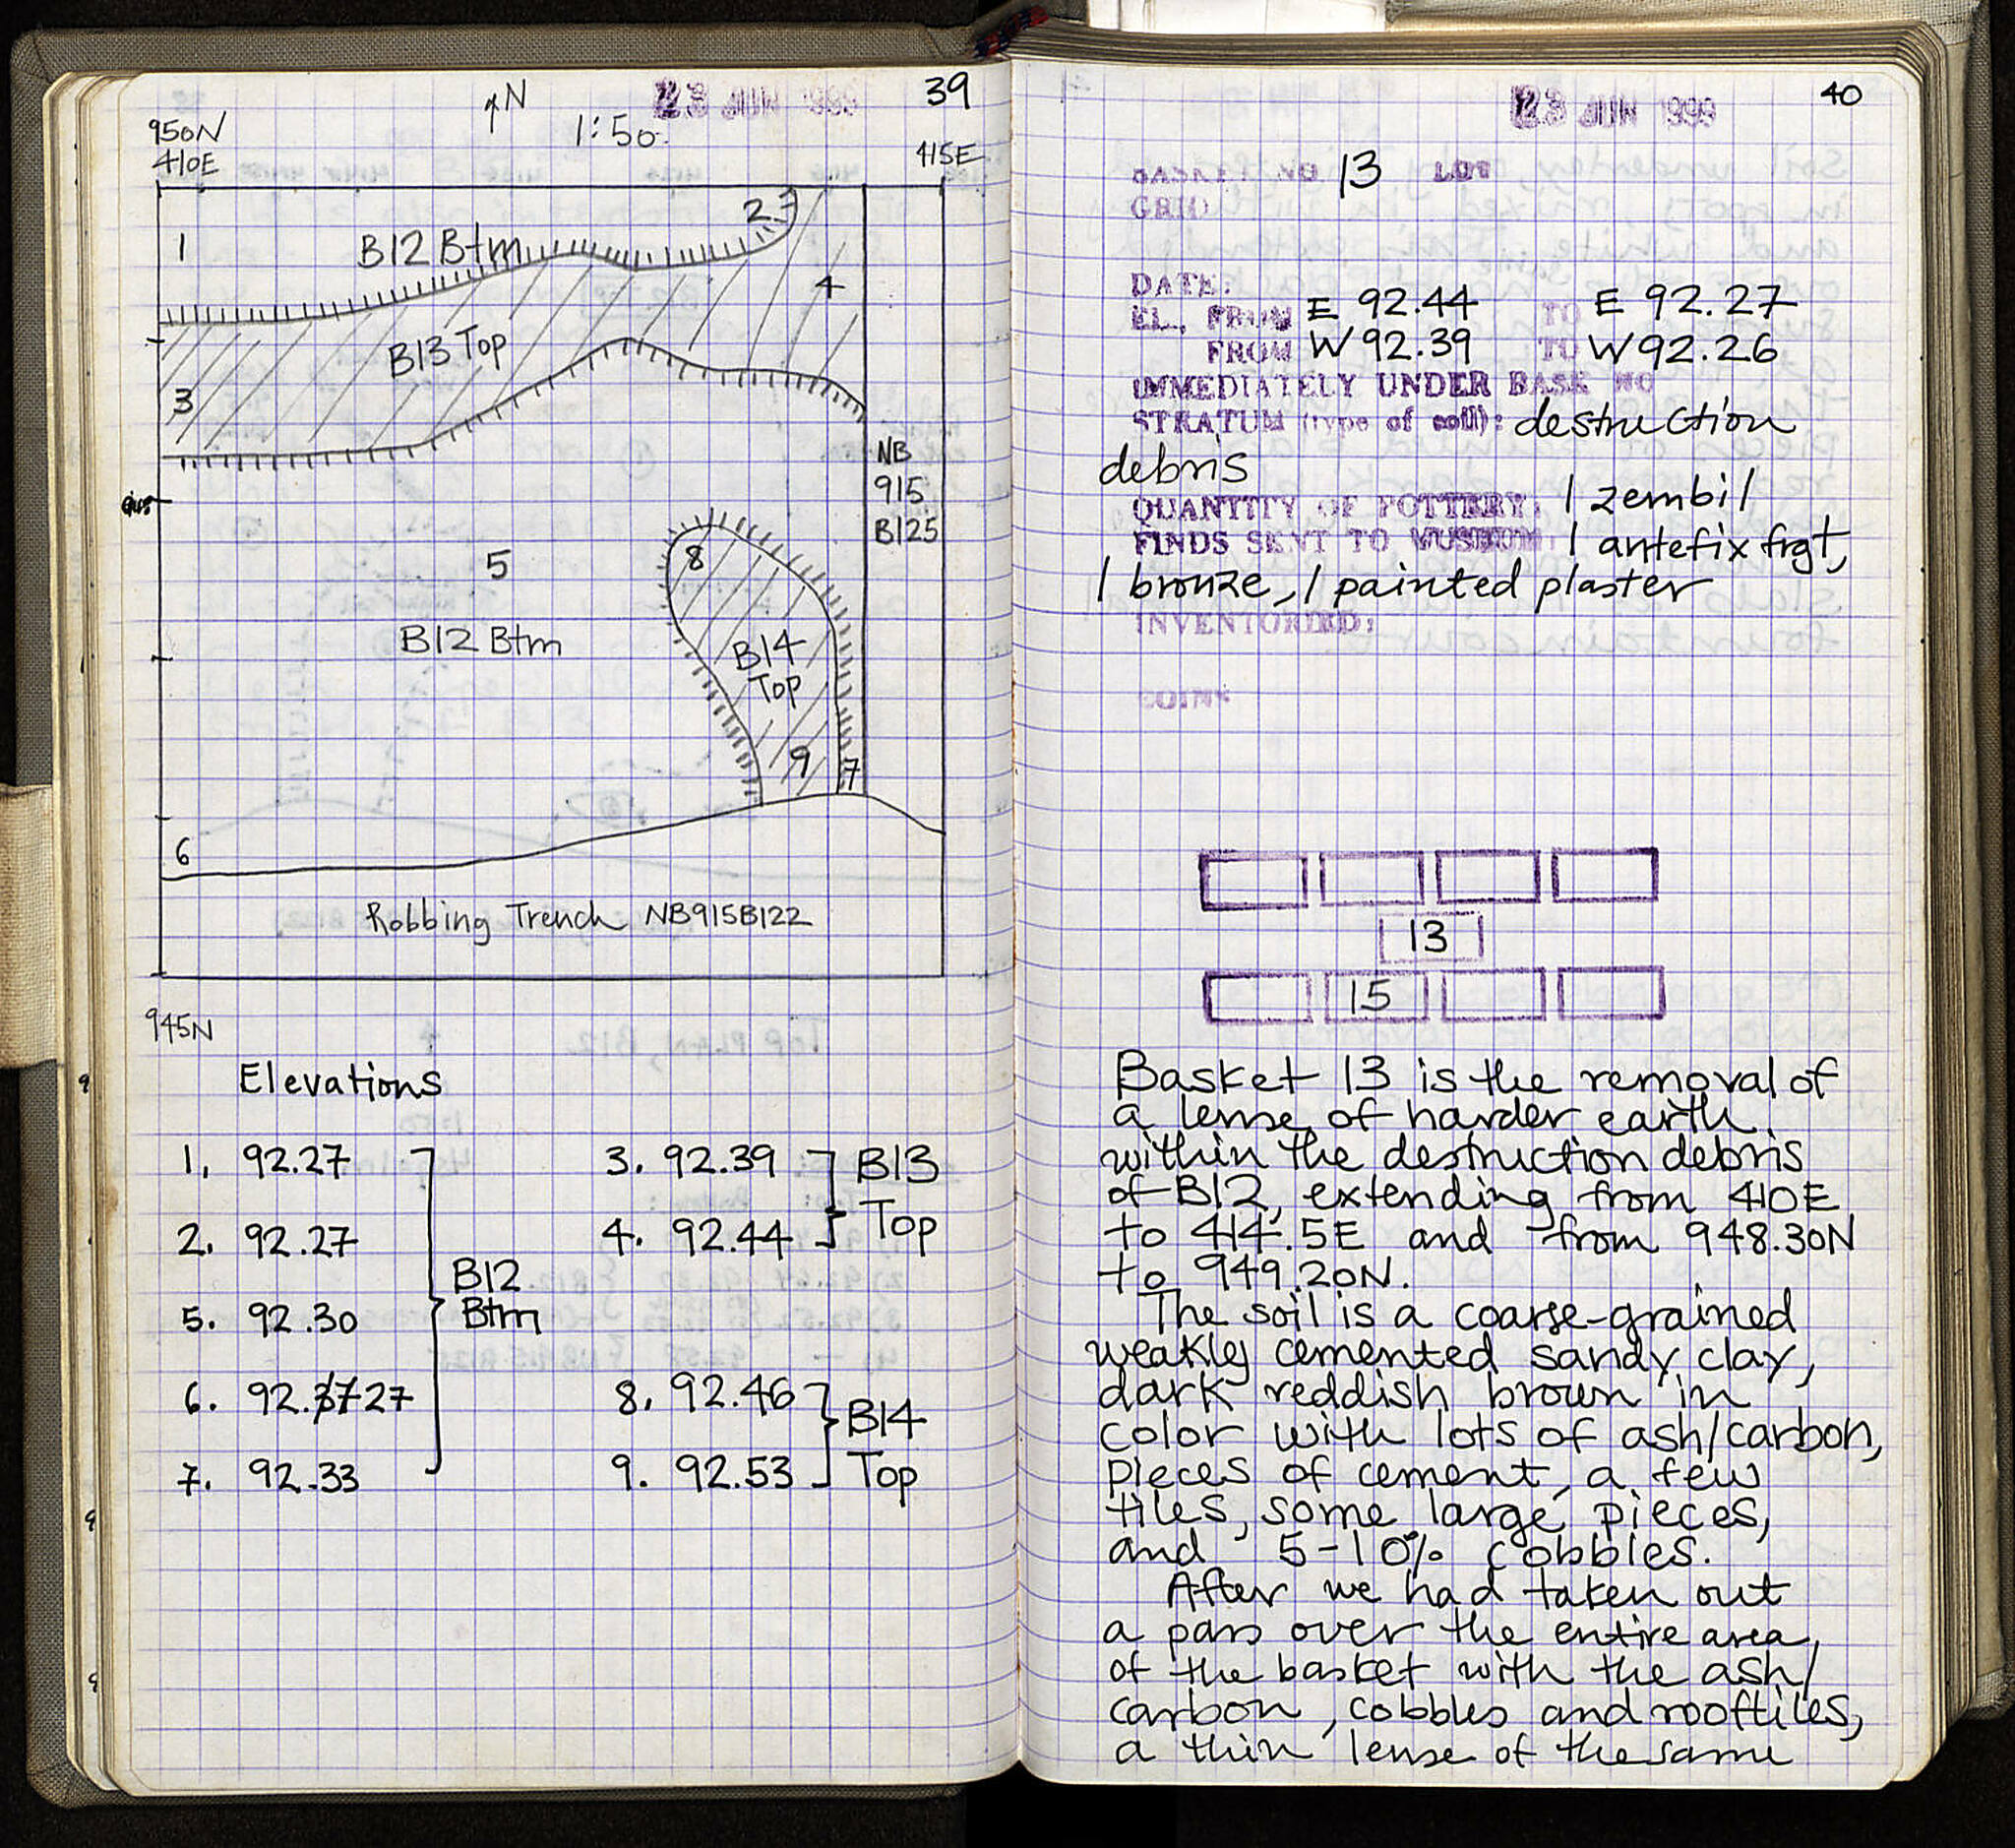 39
↑N
23 JUN 1999
1:50
950N
410E
415E
1
B12 Btm
2
4
B13 Top
3
NB
915
B125
5
8
B12 Btm
B14
Top
9
7
6
Robbing Trench NB915B122
945N
Elevations
1. 92.27
2. 92.27
5. 92.30
6. 92.37 27
7. 92.33
B12
Btm
3. 92.39
4. 92.44
B13
Top
8. 92.46
9. 92.53
B14
Top
40
23 JUN 1999
BASKET NO 13 LOT
GRID
DATE:
EL., FROM E 92.44 TO E 92.27
FROM W 92.39 TO W 92.26
IMMEDIATELY UNDER BASK NO
STRATUM (type of soil): destruction
debris
QUANTITY OF POTTERY: 1 zembil
FINDS SENT TO MUSEUM: 1 antefix frgt,
1 bronze, 1 painted plaster
INVENTORIED:
COINS
13
15
Basket 13 is the removal of
a lense of harder earth
within the destruction debris
of B12, extending from 410E
to 414.5E and from 948.30N
to 949.20N.
The soil is a coarse-grained
weakly cemented sandy clay,
dark reddish brown in
color with lots of ash/carbon,
pieces of cement, a few
tiles, some large pieces,
and 5-10% cobbles.
After we had taken out
a pass over the entire area
of the basket with the ash/
carbon, cobbles and rooftiles,
a thin lense of the same